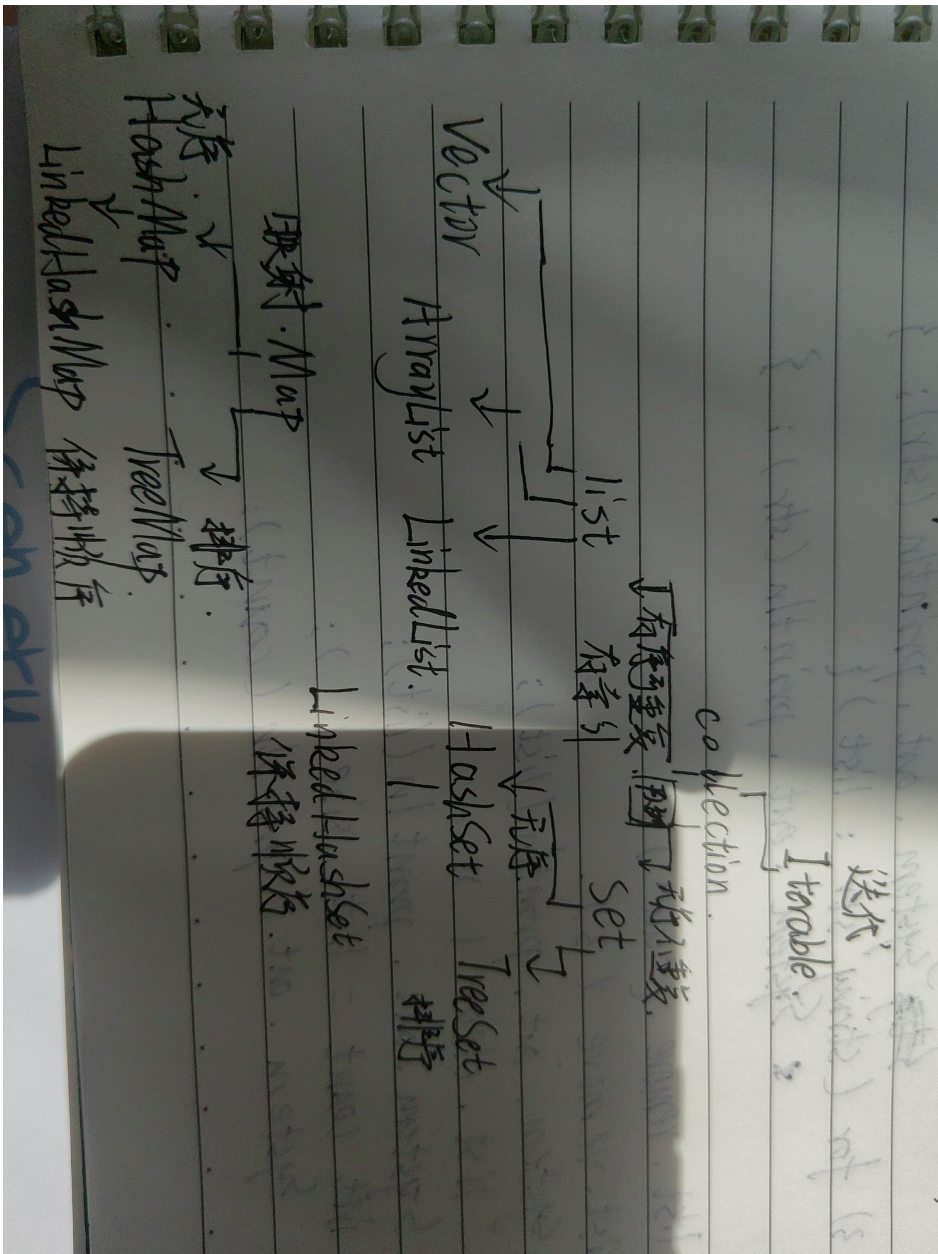 迭代
Iterable.
collection.
有序可重复 无序不重复
list 有索引 Set
无序
Vector ArrayList LinkedList. HashSet TreeSet.
排序
LinkedHashSet
保持顺序.
映射.Map
无序. 排序.
HashMap TreeMap.
LinkedHashMap 保持顺序